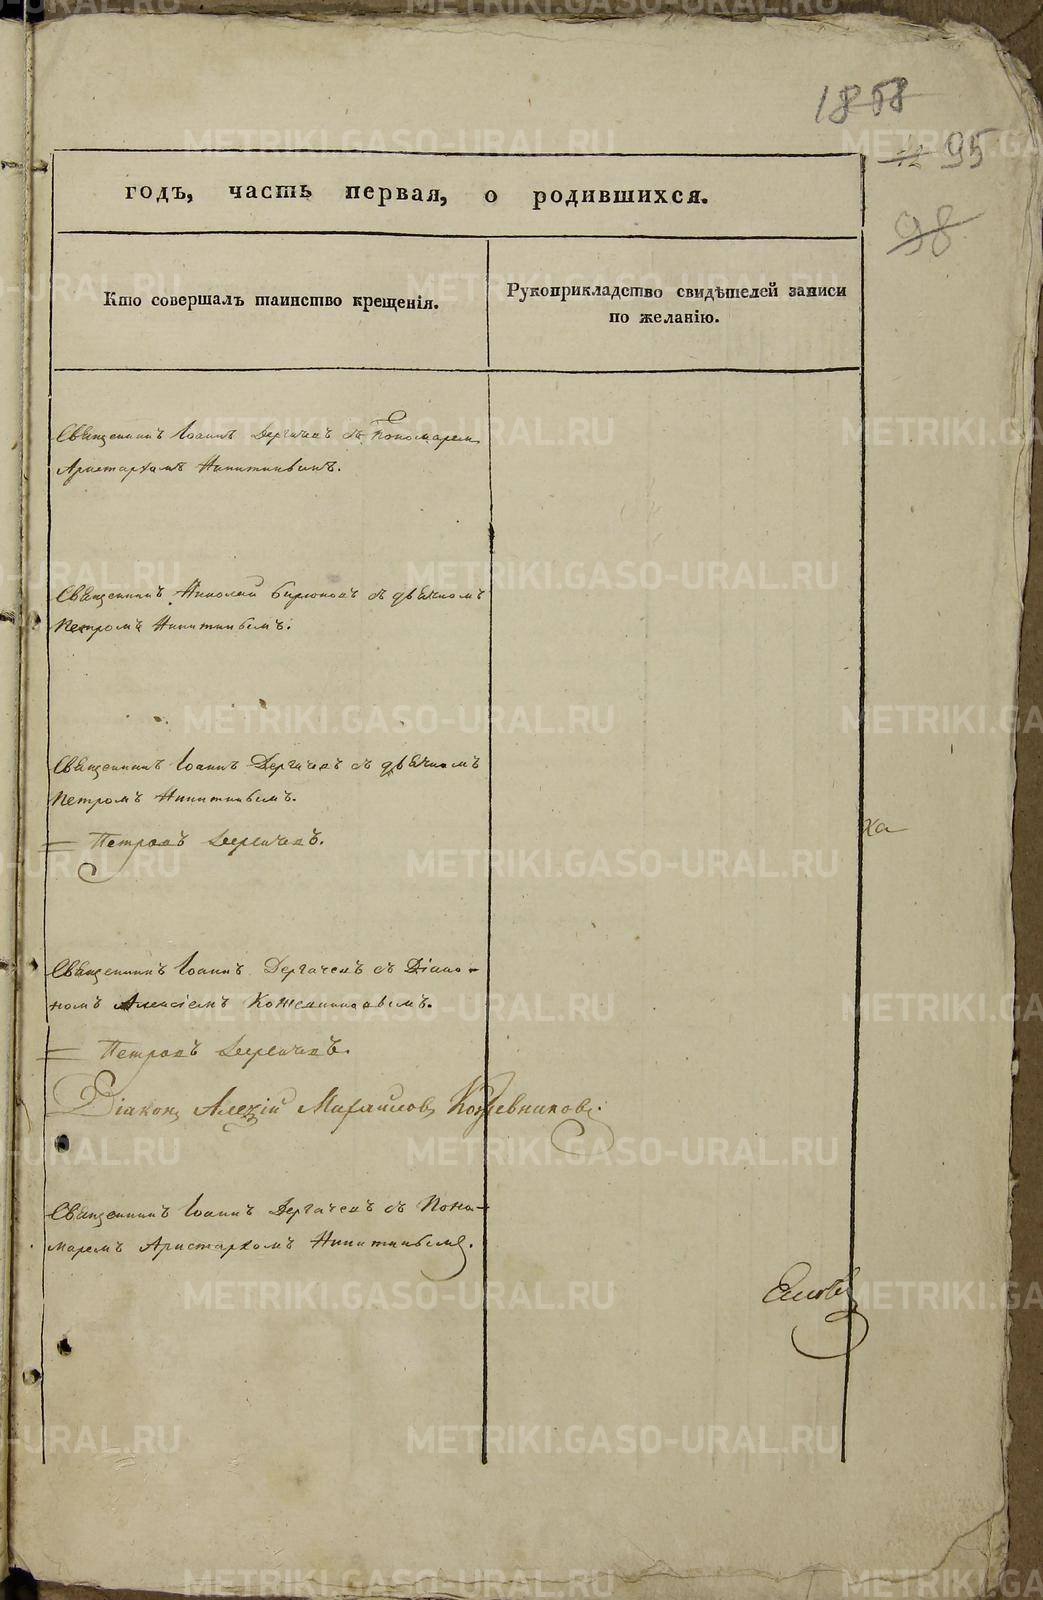 1858
95
98
годъ, часть первая, о родившихся.
Кто совершалъ таинство крещенія.
Рукоприкладство свидѣтелей записи
по желанію.
Священникъ Іоаннъ Дергачевъ съ Пономаремъ
Аристархомъ Никитинымъ.
Священникъ Николай Бирюковъ съ дьячкомъ
Петромъ Никитинымъ.
Священникъ Іоаннъ Дергачевъ съ дьячкомъ
Петромъ Никитинымъ.
Петровъ Дергачевъ.
ха
Священникъ Іоаннъ Дергачевъ съ Діако-
номъ Алексіемъ Кожевниковымъ.
Петровъ Дергачевъ.
Діаконъ Алексій Кожевниковъ.
Священникъ Іоаннъ Дергачевъ съ Поно-
маремъ Аристархомъ Никитинымъ.
METRIKI.GASO-URAL.RU